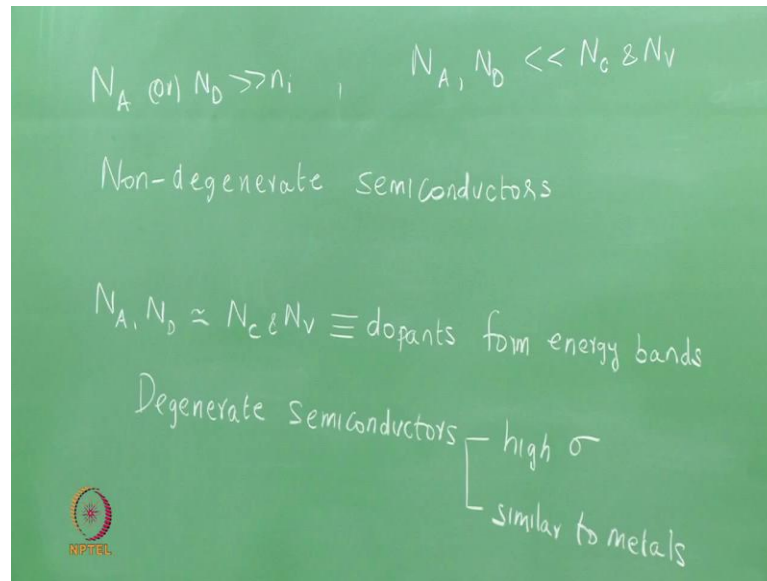 N_A (or) N_D >> n_i , N_A, N_D << N_C & N_V
Non-degenerate semiconductors
N_A, N_D ≃ N_C & N_V ≡ dopants form energy bands
Degenerate semiconductors - high σ
- similar to metals
NPTEL